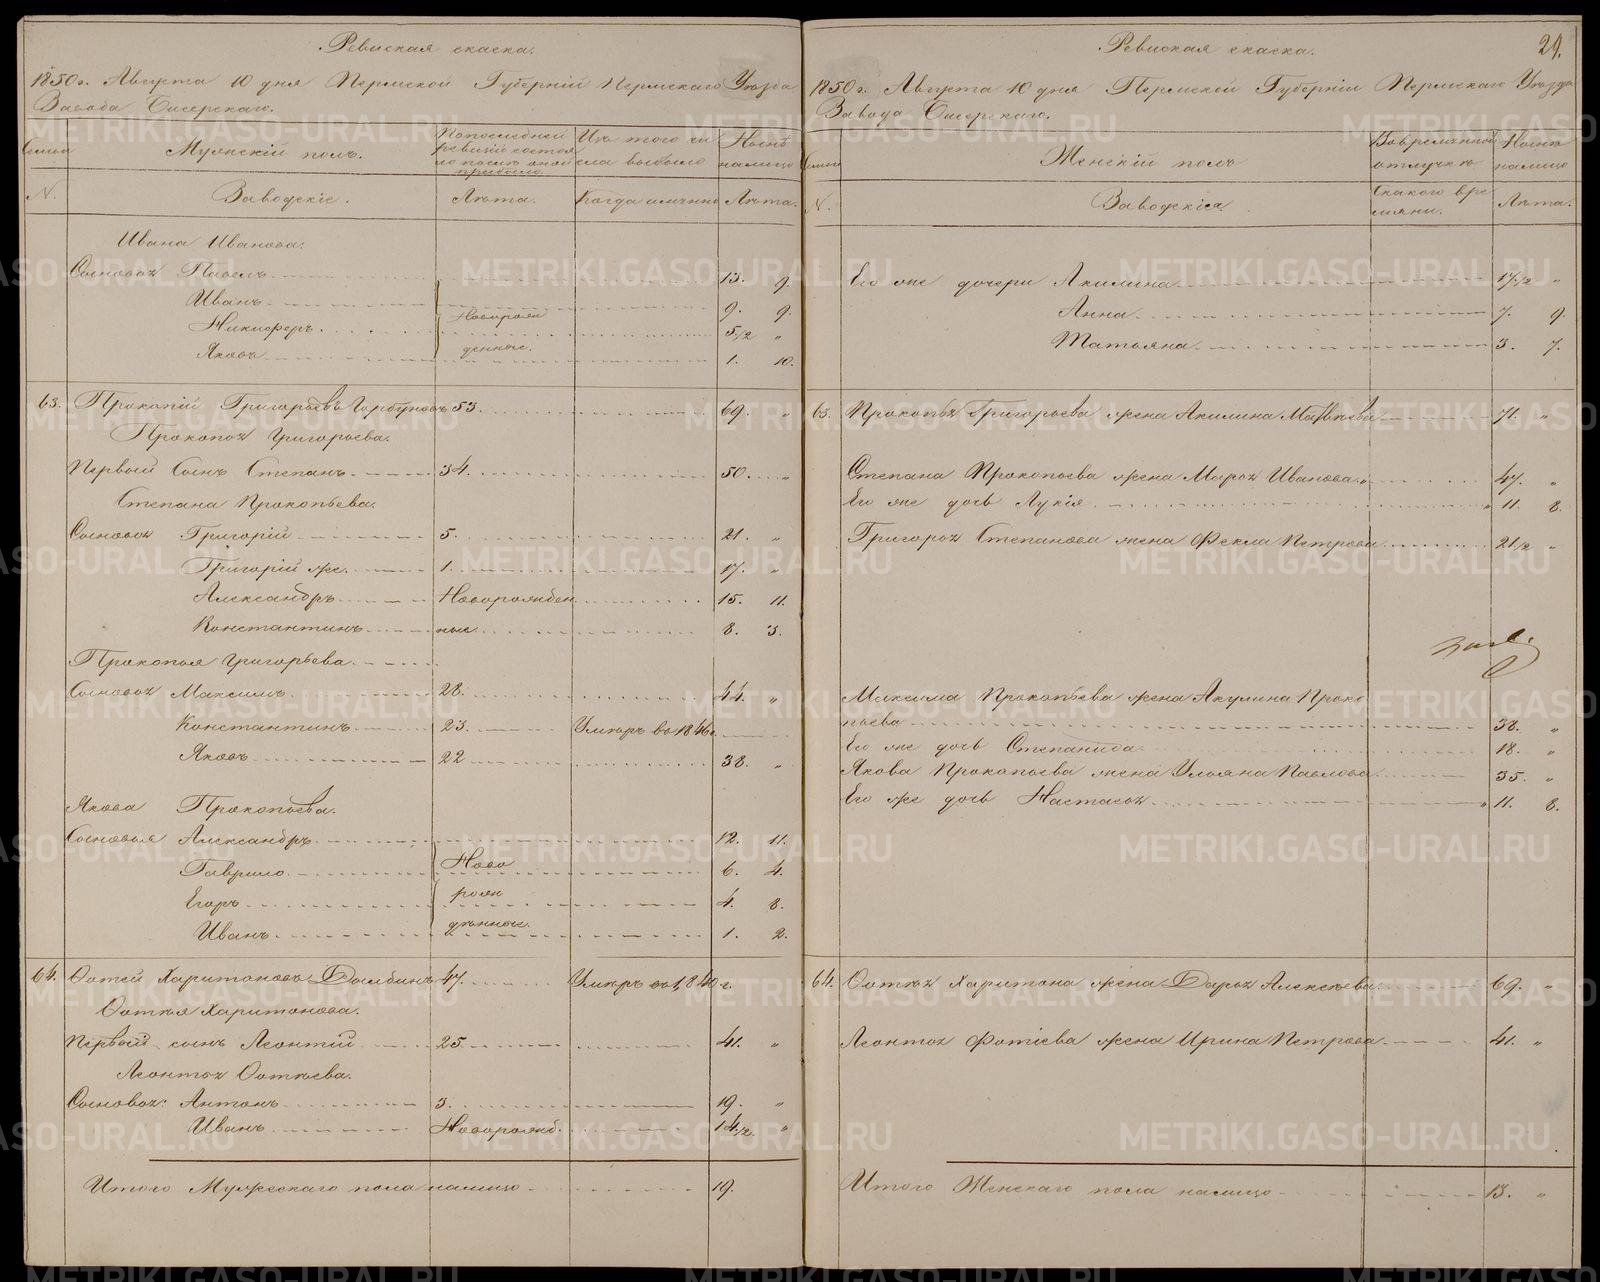 Ревиская скаска.
1850 г. Августа 10 дня Пермской Губернiи Пермскаго Уѣзда
Завода Бисерскаго.
Семьи
Мужскiй полъ.
Попоследней ревизiй состояло послѣ оной прибыло.
Изъ того числа выбыло
Нынѣ налицо
N.
Заводскiе.
Лѣта.
Когда имянно
Лѣта.
Ивана Иванова.
Сыновья Павелъ 13. 9.
Иванъ 9. 9.
Никифоръ Новорож 5 1/2 "
Яковъ денные. 1. 10.
63. Прокопiй Григорьевъ Горбуновъ 53. 69. "
Прокопья Григорьева.
Первый Сынъ Степанъ 34. 50. "
Степана Прокопьева.
Сыновья Григорiй 5. 21. "
Григорiй же 1. 17. "
Александръ Новорожден 15. 11.
Константинъ ные 8. 3.
Прокопья Григорьева
Сыновья Максимъ 28. 44. "
Константинъ 23. Умеръ въ 1846 г.
Яковъ 22 38. "
Якова Прокопьева.
Сыновья Александръ 12. 11.
Гаврило Ново 6. 4.
Егоръ рож 4. 8.
Иванъ денные. 1. 2.
64. Фотей Харитоновъ 47. Умеръ въ 1840 г.
Фотѣя Харитонова.
Первый сынъ Леонтiй 25. 41. "
Леонтья Фотѣева.
Сыновья: Антонъ 3. 19. "
Иванъ Новорожд. 14 1/2. "
Итого Мужескаго пола налицо 19.
Ревиская скаска.
29.
1850 г. Августа 10 дня Пермской Губернiи Пермскаго Уѣзда
Завода Бисерскаго.
Семьи
Женскiй полъ
Вовременной отлучкѣ
Нынѣ налицо
N.
Заводскiе
Скакого времяни.
Лѣта.
Его же дочери Акилина 17 1/2 "
Анна 7. 9.
Татьяна 3. 7.
63. Прокопья Григорьева жена Акилина Матвѣева 71. "
Степана Прокопьева жена Марья Иванова 47. "
Его же дочь Лукiя " 11. 8.
Григорья Степанова жена Фекла Петрова 21 1/2 "
Максима Прокопьева жена Акулина Проко
пьева 38. "
Его же дочь Степанида 18. "
Якова Прокопьева жена Ульяна Павлова 35. "
Его же дочь Настасья " 11. 8.
64. Фотѣя Харитона жена Дарья Алексѣева 69. "
Леонтья Фотiева жена Ирина Петрова 41. "
Итого Женскаго пола налицо 13. "
METRIKI.GASO-URAL.RU